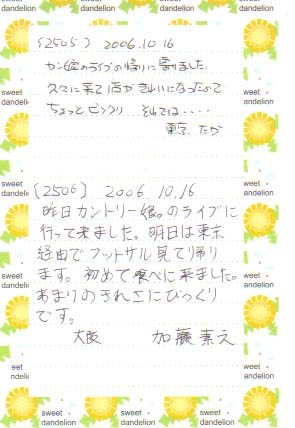 (2505) 2006.10.16
カン娘のライブの帰りに寄りました。
久々に来て店がきれいになったので
ちょっとビックリ それでは・・・・
東京 たか
(2506) 2006.10.16
昨日カントリー娘。のライブに
行って来ました。明日は東京
経由でフットサル見てり帰り
ます。初めて食べに来ました。
あまりのきれさにびっくり
です。
大阪 加藤素え
sweet dandelion
sweet dandelion
sweet dandelion
sweet dandelion
sweet dandelion
sweet dandelion
sweet dandelion
sweet dandelion